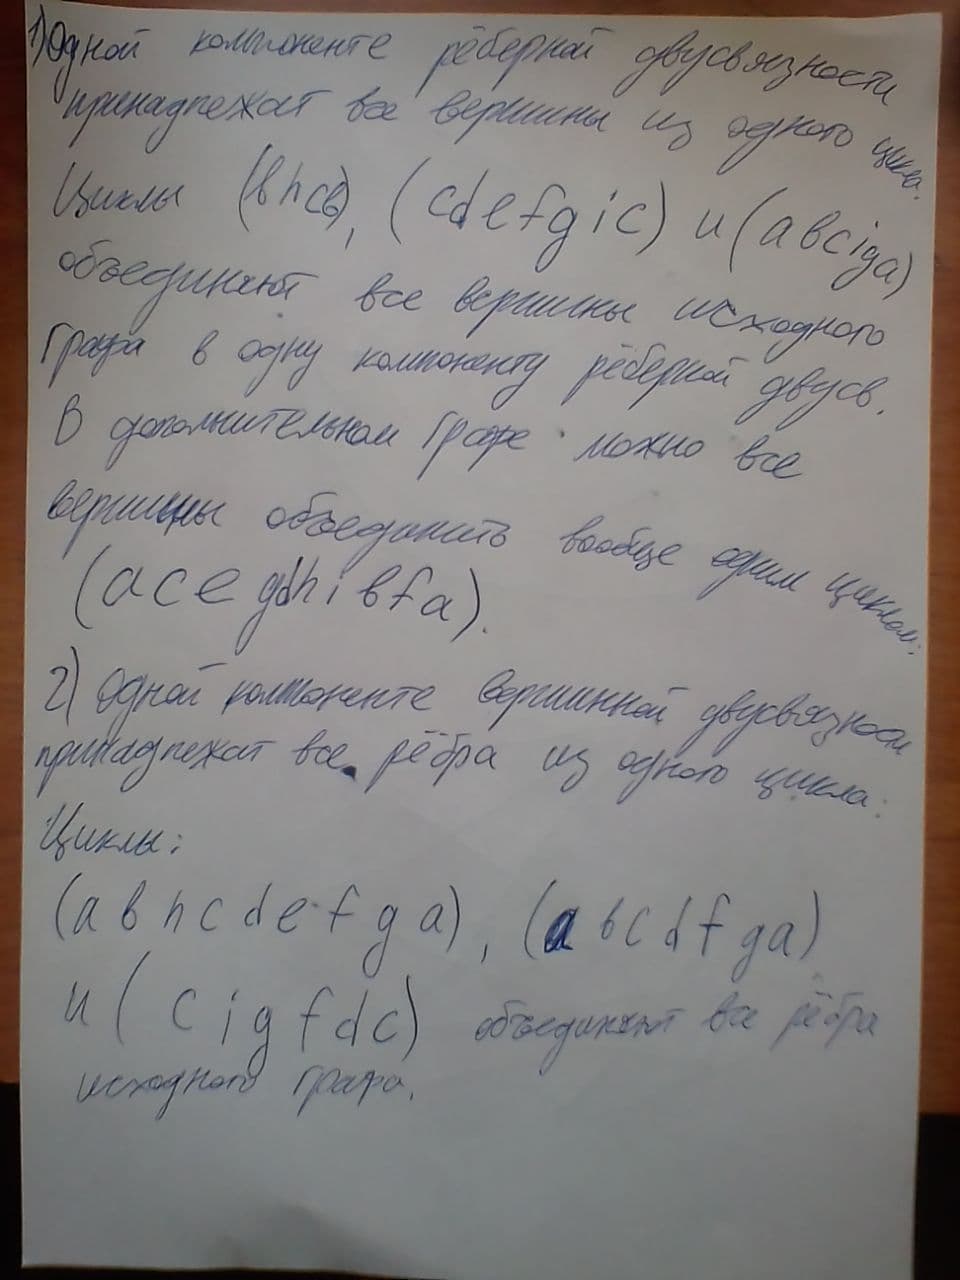 1) Одной компоненте рёберной двусвязности
принадлежат все вершины из одного цикла.
Циклы (bhcb), (cdefgic) и (abciga)
объединяют все вершины исходного
графа в одну компоненту рёберной двусв.
В дополнительном графе можно все
вершины объединить вообще одним циклом:
(acegdhibfa).
2) Одной компоненте вершинной двусвязности
принадлежат все рёбра из одного цикла.
Циклы:
(abhcdefga), (abcdfga)
и (cigfdc) объединяют все рёбра
исходного графа.